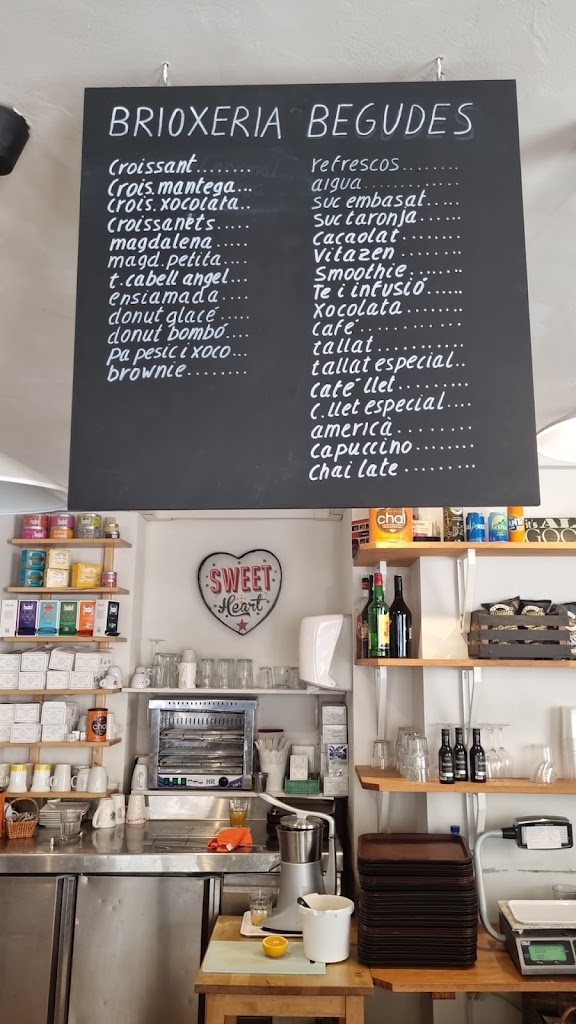 BRIOXERIA
croissant........
Crois.mantega...
Crois.xocolata..
croissanets.....
magdalena.....
magd.petita....
t.cabell angel...
ensiamada....
donut glacé....
donut bombó..
pa pesic i xoco...
brownie........
BEGUDES
refrescos........
aigua..............
suc embasat.....
Suc taronja......
Cacaolat........
Vitazen........
Smoothie.......
Te i infusió.....
Xocolata........
café............
tallat...........
tallat especial..
café llet.........
C.llet especial....
americà........
capuccino.......
chai late........
SWEET
Heart
chai
it's AL
GOO
HR
chai